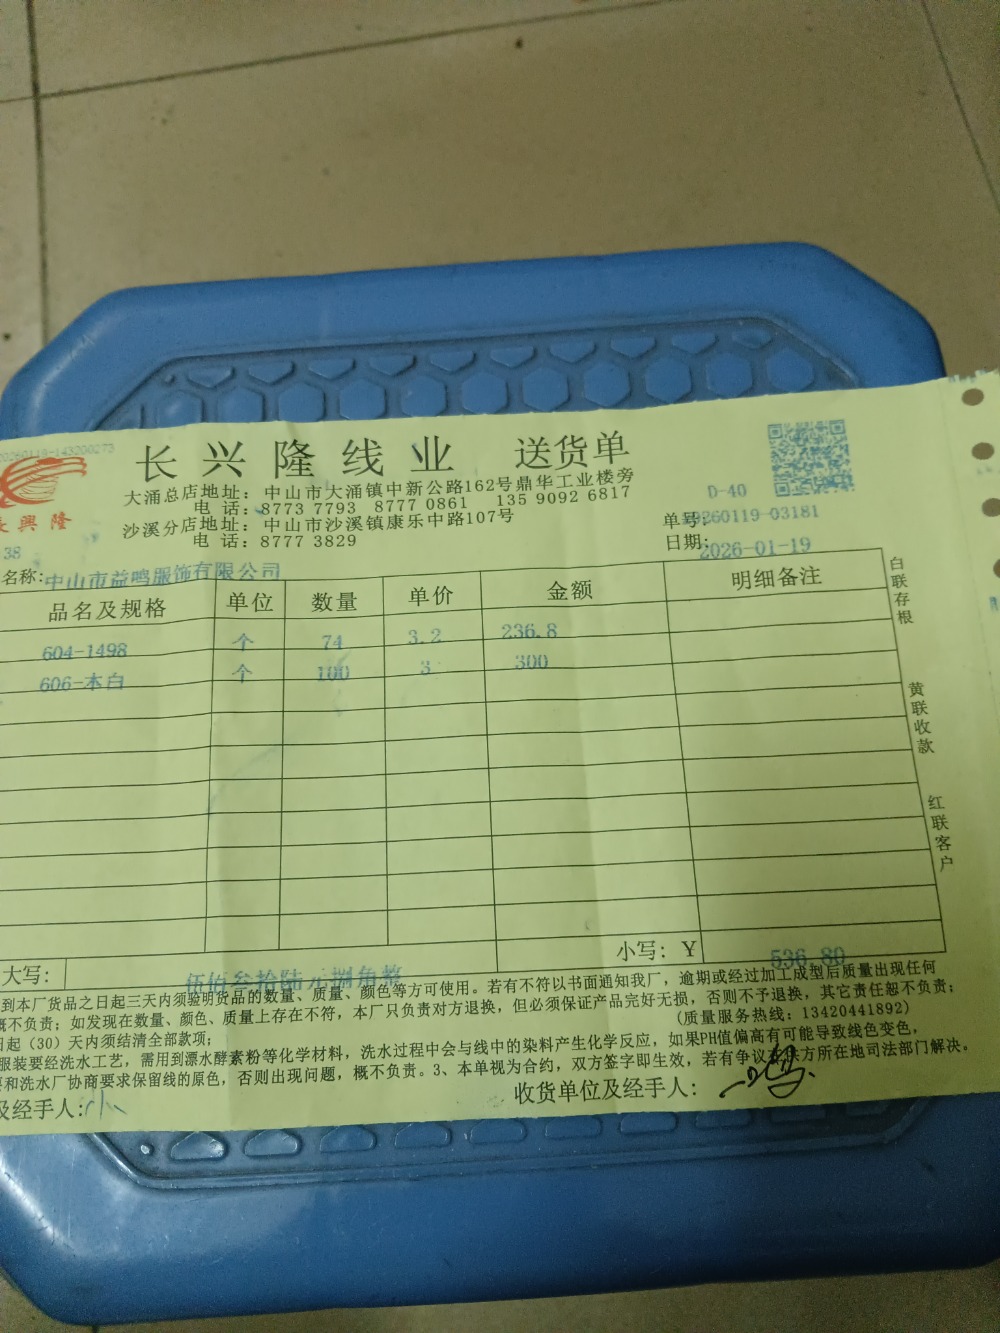 20260119-143200273
長興隆
长兴隆线业 送货单
大涌总店地址：中山市大涌镇中新公路162号鼎华工业楼旁
电 话：8773 7793 8777 0861 135 9092 6817
沙溪分店地址：中山市沙溪镇康乐中路107号
电 话：8777 3829
D-40
单号:20260119-03181
日期:2026-01-19
38
名称:中山市益鸣服饰有限公司
品名及规格 单位 数量 单价 金额 明细备注
604-1498 个 74 3.2 236.8
606-本白 个 100 3 300
白联存根
黄联收款
红联客户
小写：Y 536.80
大写：伍佰叁拾陆元捌角整
到本厂货品之日起三天内须验明货品的数量、质量、颜色等方可使用。若有不符以书面通知我厂，逾期或经过加工成型后质量出现任何
概不负责；如发现在数量、颜色、质量上存在不符，本厂只负责对方退换，但必须保证产品完好无损，否则不予退换，其它责任恕不负责；
日起（30）天内须结清全部款项； (质量服务热线：13420441892)
服装要经洗水工艺，需用到漂水酵素粉等化学材料，洗水过程中会与线中的染料产生化学反应，如果PH值偏高有可能导致线色变色，
和洗水厂协商要求保留线的原色，否则出现问题，概不负责。3、本单视为合约，双方签字即生效，若有争议由供方所在地司法部门解决。
及经手人: 收货单位及经手人：